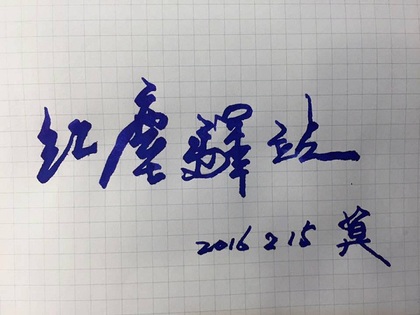 红塵驛站
2016 2 15 莫